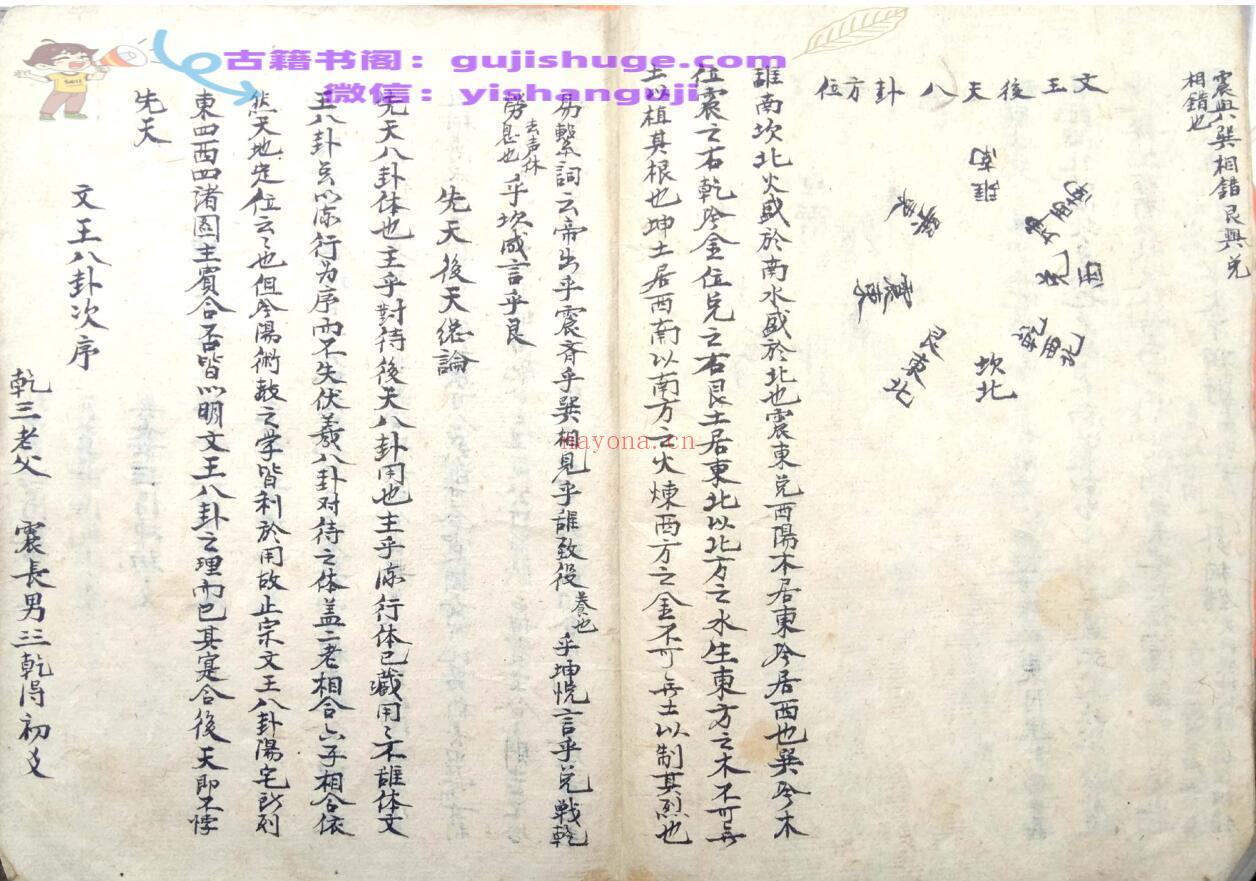 古籍书阁：gujishuge.com
微信：yishangguji
nayona.cn
震與巽相錯艮與兑
相錯也
文王後天八卦方位
離南
坤西南
兑西
乾西北
坎北
艮東北
震東
巽東
離南坎北火盛於南水盛於北也震東兑西陽木居東阴居西也巽阴木
位震之右乾阴金位兑之右艮土居東北以北方之水生東方之木不可無
土以植其根也坤土居西南以南方之火煉西方之金不可無土以制其烈也
易繫詞云帝出乎震齊乎巽相見乎離致役養也乎坤悦言乎兑戰乾
去声休
勞息也乎坎成言乎艮
先天後天總論
先天八卦体也主乎對待後天八卦用也主乎流行体已藏用〻不離体文
王八卦云以流行为序而不失伏羲八卦对待之体盖二老相合六子相合依
然天地定位云〻也但今陽術数之学皆利於用故止宗文王八卦陽宅所列
東四西四渚圖主賓合否皆以明文王八卦之理而已其寔合後天即不悖
先天
文王八卦次序
乾三老父 震長男三乾得初爻